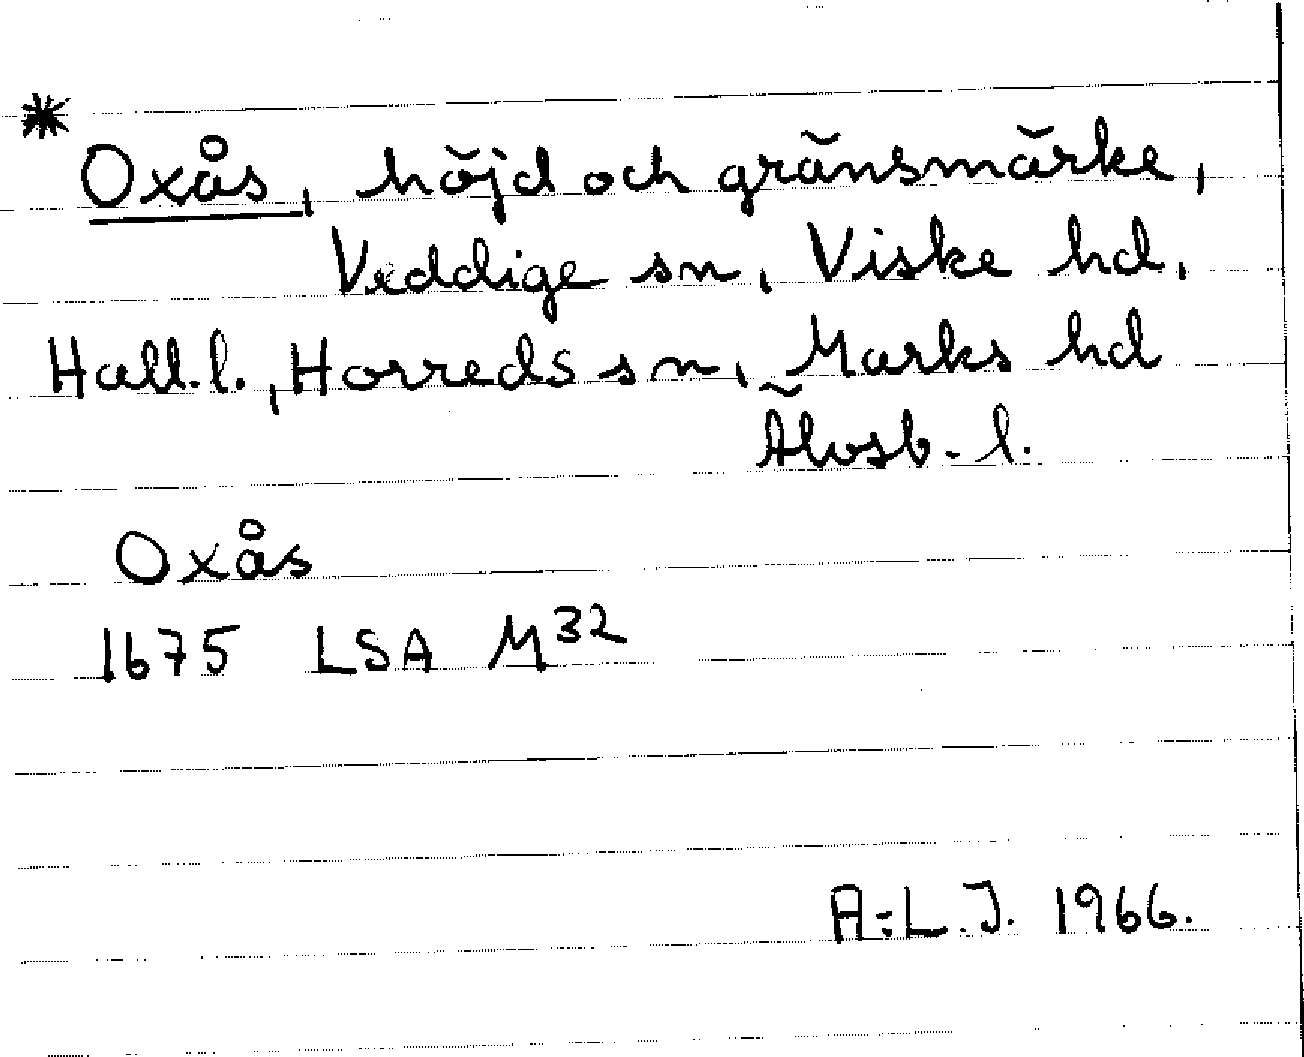 * Oxås, höjd och gränsmärke,
Veddige sn, Viske hd,
Hall.l., Horreds sn, Marks hd
Älvsb. l.
Oxås
1675 LSA M32
A-L.J. 1966.